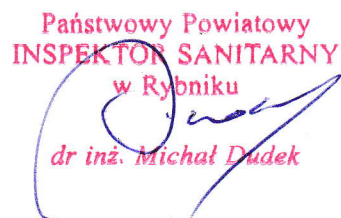 Państwowy Powiatowy
INSPEKTOR SANITARNY
w Rybniku
dr inż. Michał Dudek